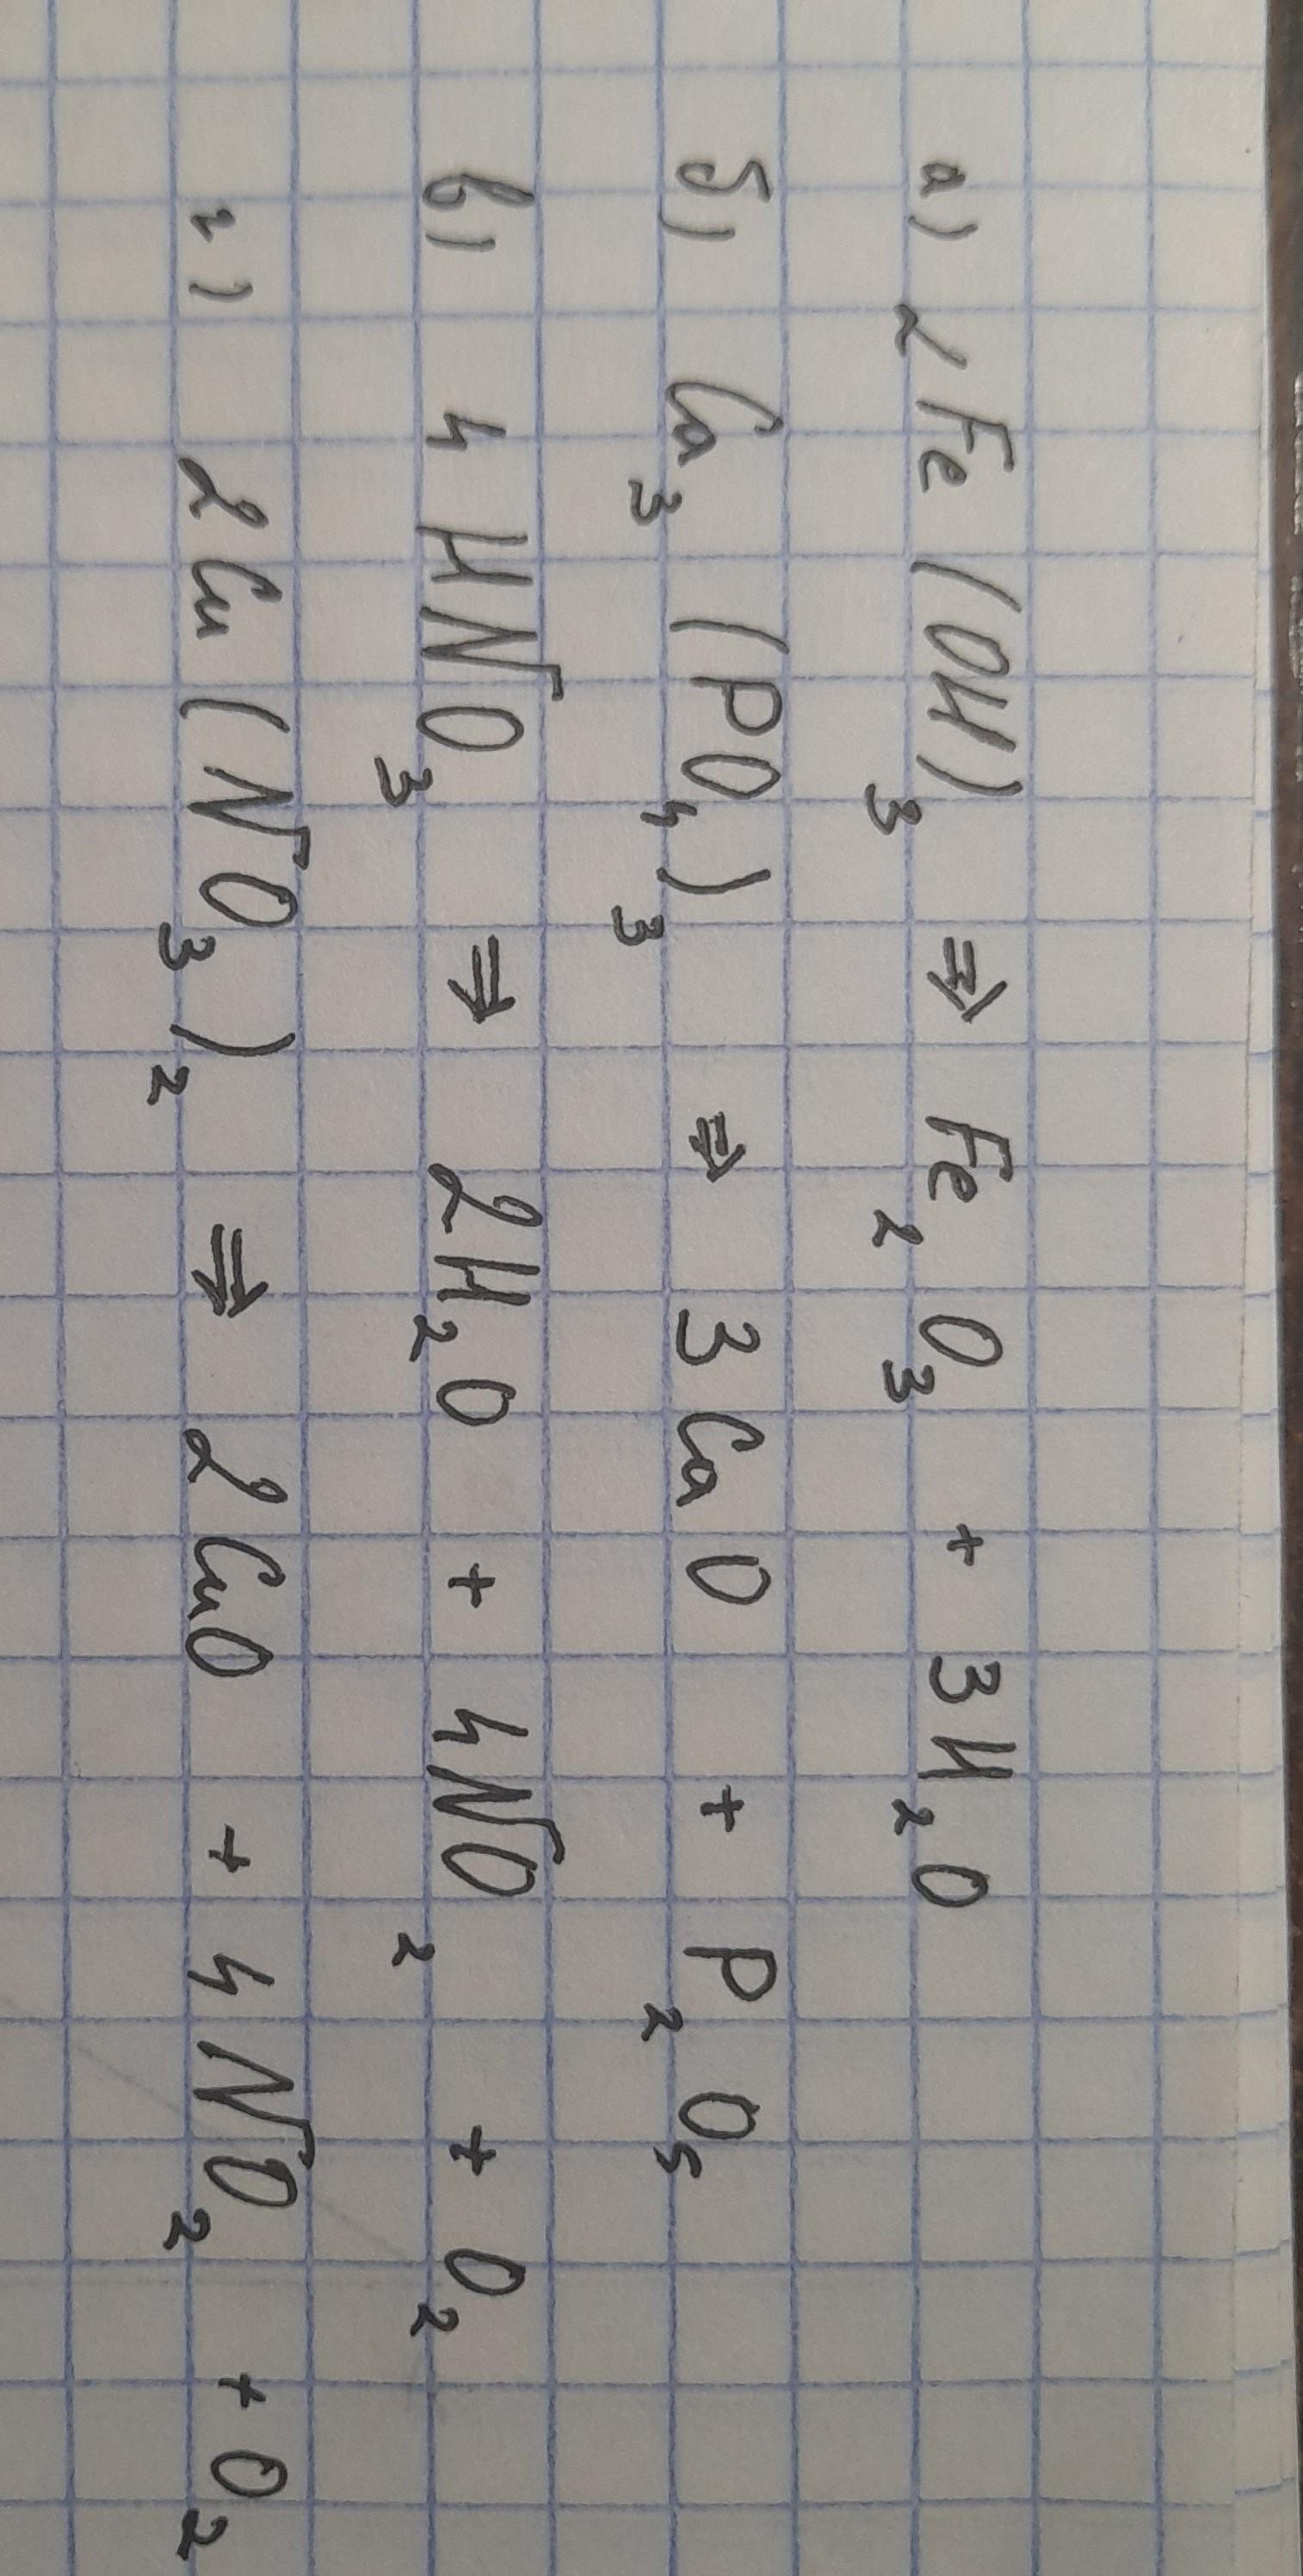 а) 2Fe(OH)₃ ⇒ Fe₂O₃ + 3H₂O
б) Ca₃(PO₄)₃ ⇒ 3CaO + P₂O₅
в) 4HNO₃ ⇒ 2H₂O + 4NO₂ + O₂
г) 2Cu(NO₃)₂ ⇒ 2CuO + 4NO₂ + O₂